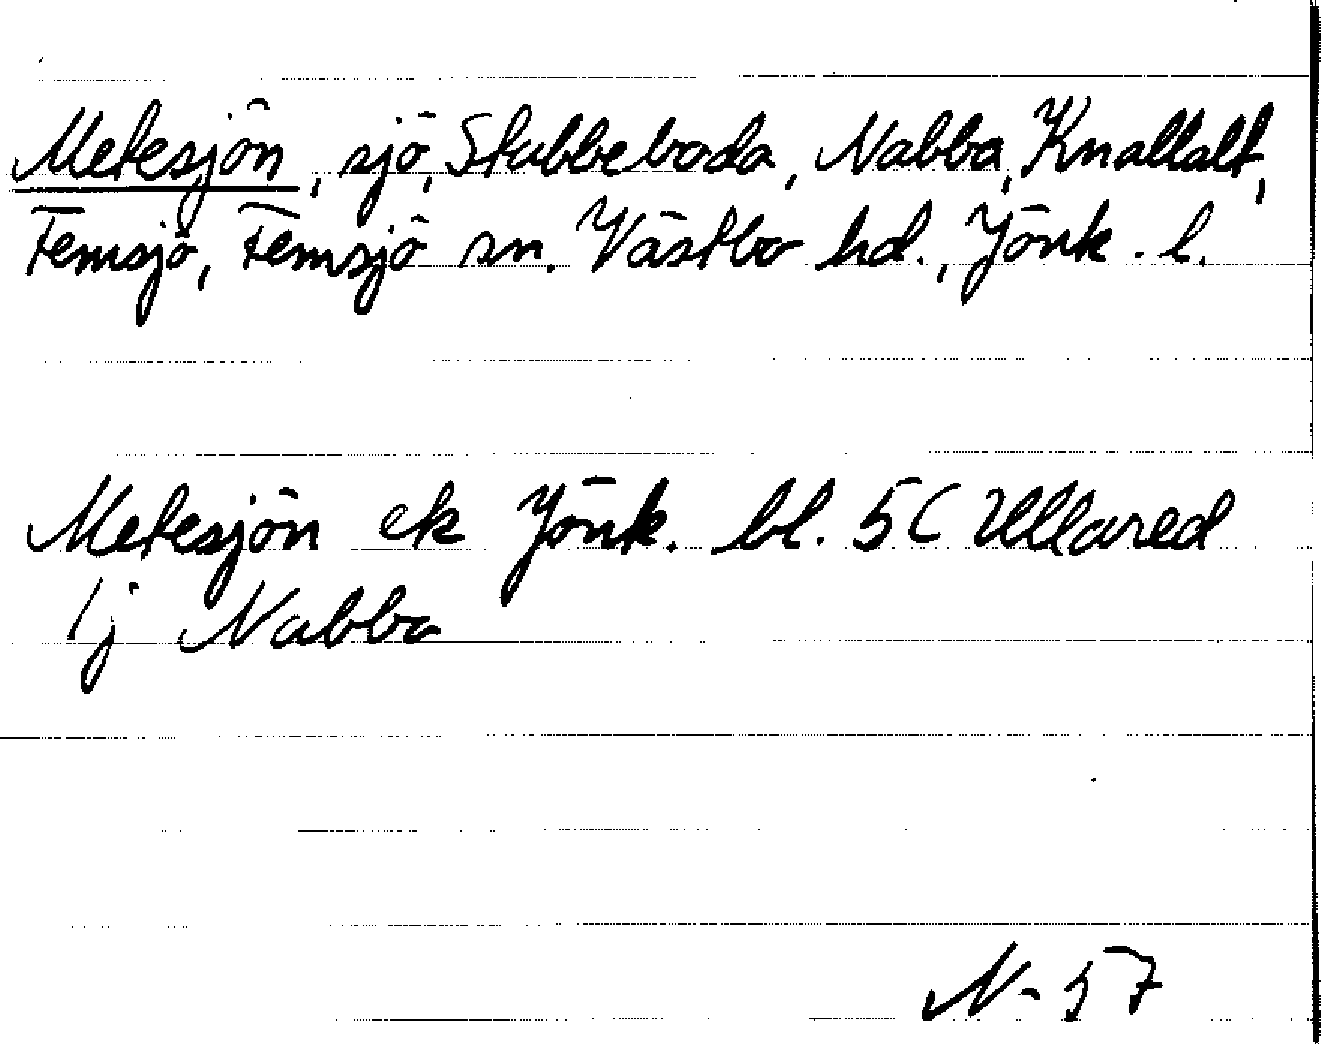 Metesjön, sjö, Stubbeboda, Nabba, Knallalt,
Femsjö, Femsjö sn. Västbo hd., Jönk. l.
Metesjön ek Jönk. bl. 5C Ullared
1j Nabba
N-57